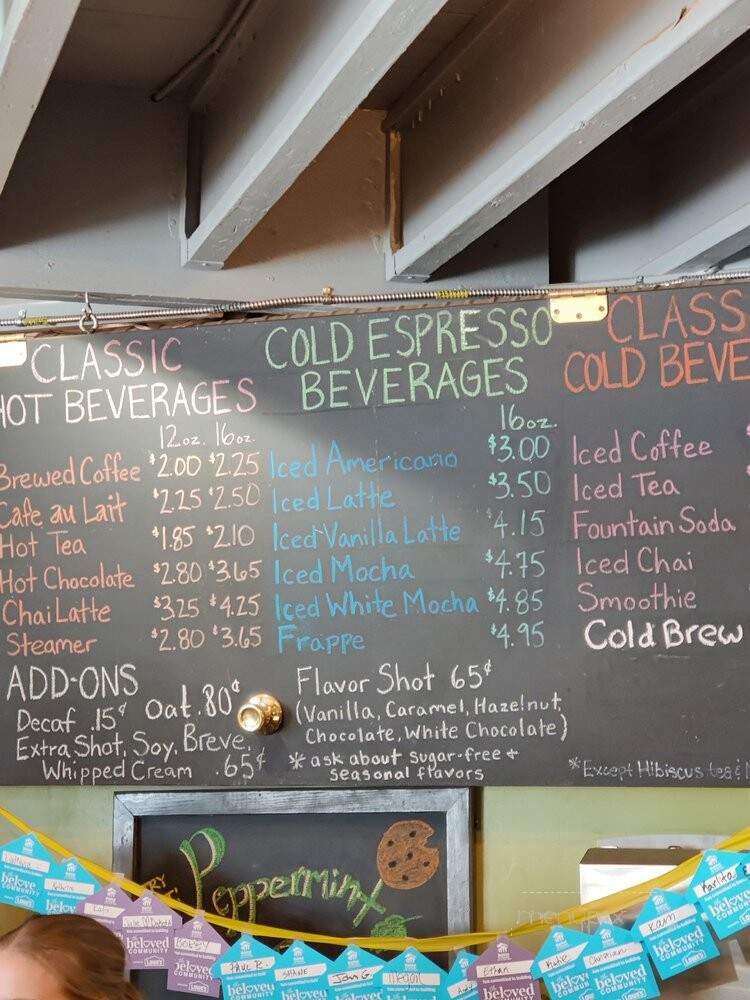 CLASSIC
HOT BEVERAGES
12oz. 16oz.
Brewed Coffee $2.00 $2.25
Cafe au Lait $2.25 $2.50
Hot Tea $1.85 $2.10
Hot Chocolate $2.80 $3.65
Chai Latte $3.25 $4.25
Steamer $2.80 $3.65
COLD ESPRESSO
BEVERAGES
16oz.
Iced Americano $3.00
Iced Latte $3.50
Iced Vanilla Latte $4.15
Iced Mocha $4.75
Iced White Mocha $4.85
Frappe $4.95
CLASS
COLD BEVE
Iced Coffee
Iced Tea
Fountain Soda
Iced Chai
Smoothie
Cold Brew
ADD-ONS
Decaf .15¢ Oat .80¢
Extra Shot, Soy, Breve,
Whipped Cream .65¢
Flavor Shot 65¢
(Vanilla, Caramel, Hazelnut,
Chocolate, White Chocolate)
*ask about sugar-free +
seasonal flavors
*Except Hibiscus tea
Peppermint
beloved
COMMUNITY
SHANE
Jon G.
Ethan
Kam